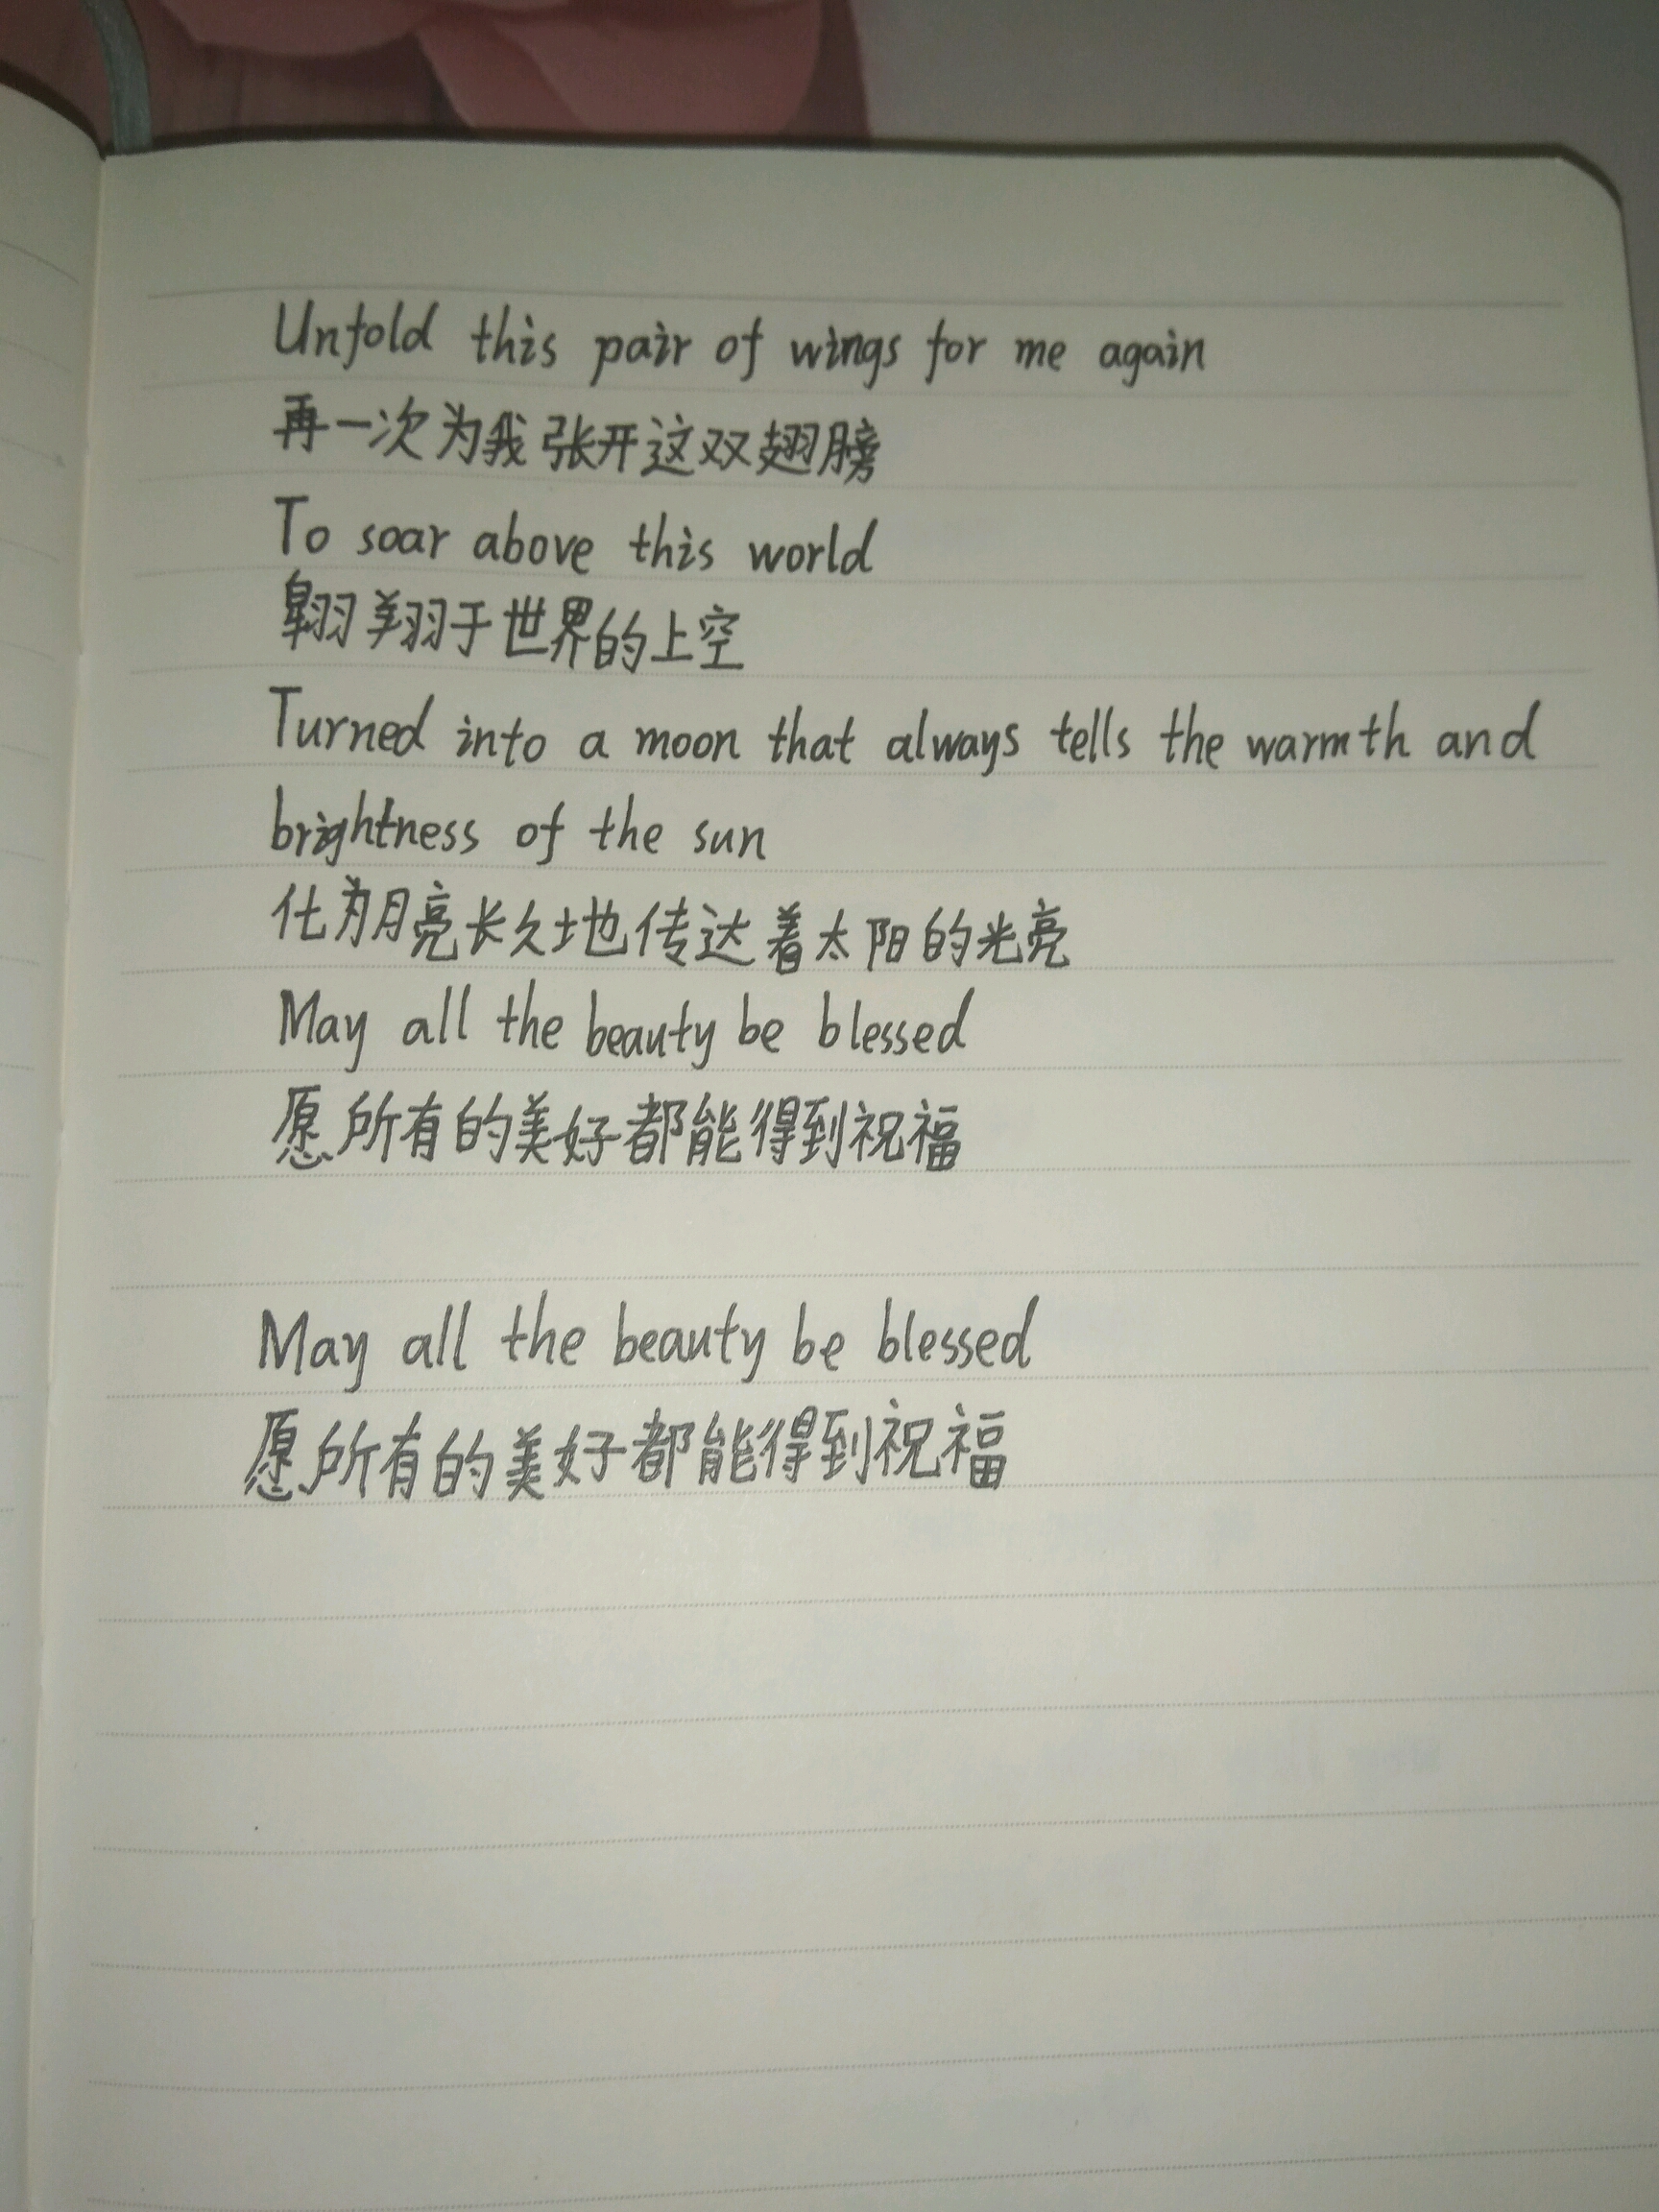 Unfold this pair of wings for me again
再一次为我张开这双翅膀
To soar above this world
翱翔于世界的上空
Turned into a moon that always tells the warmth and
brightness of the sun
化为月亮长久地传达着太阳的光亮
May all the beauty be blessed
愿所有的美好都能得到祝福
May all the beauty be blessed
愿所有的美好都能得到祝福